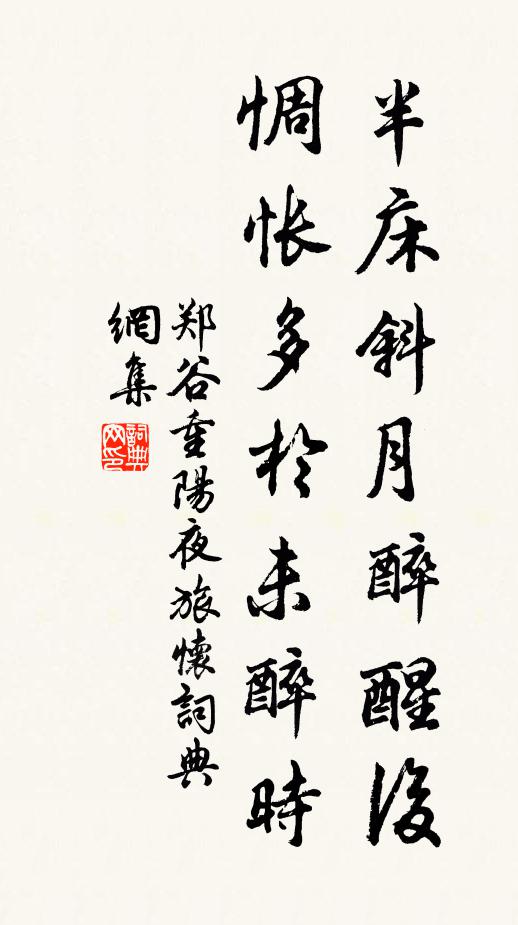 半床斜月醉醒後
惆怅多於未醉時
郑谷重陽夜旅懷詞典
網集
詞典
网印